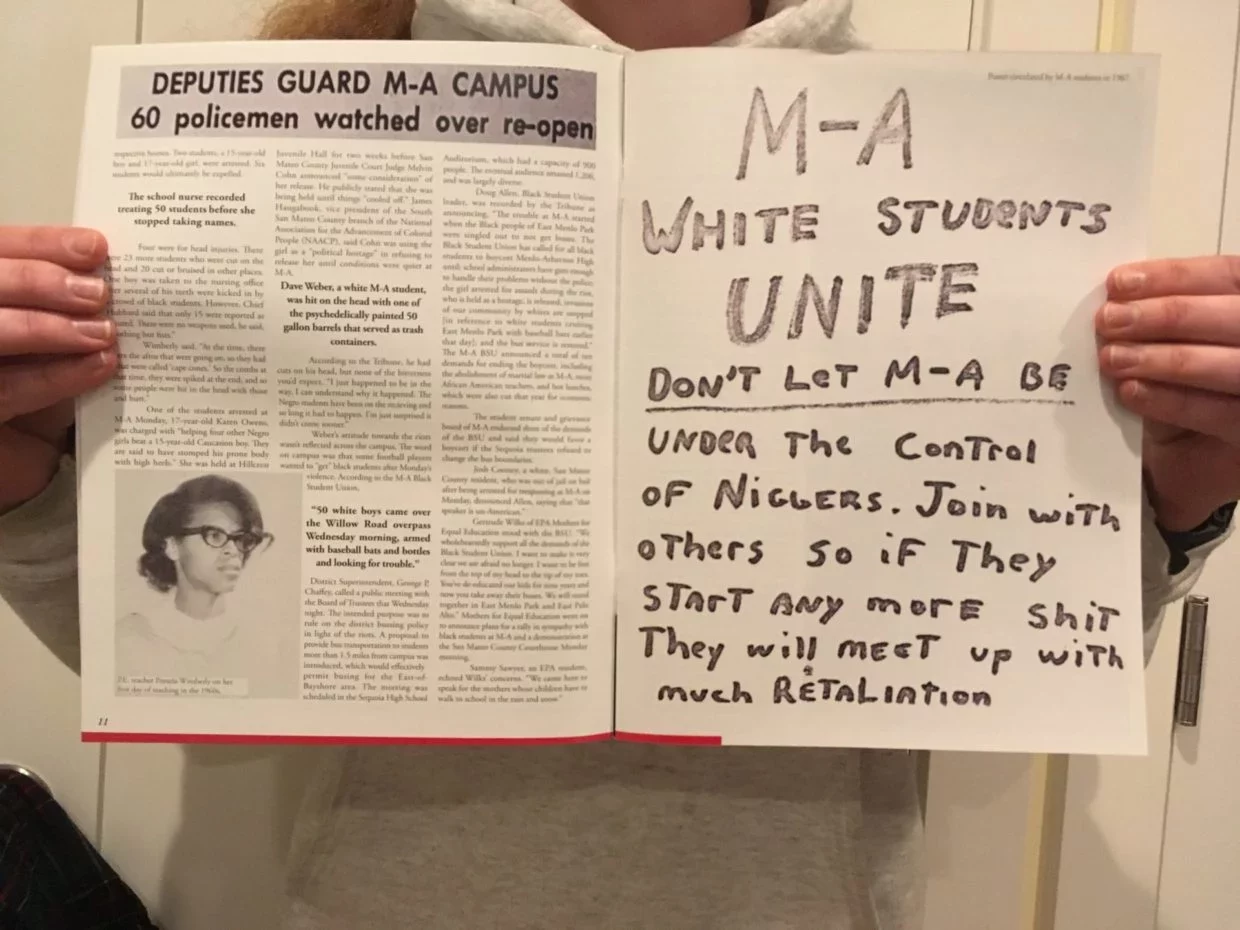 DEPUTIES GUARD M-A CAMPUS
60 policemen watched over re-open
respective houses. Two students, a 15-year-old
boy and 17-year-old girl, were arrested. Six
students would ultimately be expelled.
The school nurse recorded
treating 50 students before she
stopped taking names.
Four were for head injuries. There
were 23 more students who were cut on the
head and 20 cut or bruised in other places.
One boy was taken to the nursing office
after several of his teeth were kicked in by
crowd of black students. However, Chief
Hubbard said that only 15 were reported as
There were no weapons used, he said,
but fists."
Wimberly said, "At the time, there
was the afros that were going on, so they had
what were called 'cape cones.' So the combs at
that time, they were spiked at the end, and so
some people were hit in the head with those
and hurt."
One of the students arrested at
M-A Monday, 17-year-old Karen Owens,
was charged with "helping four other Negro
girls beat a 15-year-old Caucasian boy. They
are said to have stomped his prone body
with high heels." She was held at Hillcrest
P.E. teacher Pamela Wimberly on her
first day of teaching in the 1960s.
11
Juvenile Hall for two weeks before San
Mateo County Juvenile Court Judge Melvin
Cohn announced "some consideration" of
her release. He publicly stated that she was
being held until things "cooled off." James
Haugabook, vice president of the South
San Mateo County branch of the National
Association for the Advancement of Colored
People (NAACP), said Cohn was using the
girl as a "political hostage" in refusing to
release her until conditions were quiet at
M-A.
Dave Weber, a white M-A student,
was hit on the head with one of
the psychedelically painted 50
gallon barrels that served as trash
containers.
According to the Tribune, he had
cuts on his head, but none of the bitterness
you'd expect. "I just happened to be in the
way. I can understand why it happened. The
Negro students have been on the receiving end
so long it had to happen. I'm just surprised it
didn't come sooner."
Weber's attitude towards the riots
wasn't reflected across the campus. The word
on campus was that some football players
wanted to "get" black students after Monday's
violence. According to the M-A Black
Student Union,
"50 white boys came over
the Willow Road overpass
Wednesday morning, armed
with baseball bats and bottles
and looking for trouble."
District Superintendent, George P.
Chaffey, called a public meeting with
the Board of Trustees that Wednesday
night. The intended purpose was to
rule on the district bussing policy
in light of the riots. A proposal to
provide bus transportation to students
more than 1.5 miles from campus was
introduced, which would effectively
permit busing for the East-of-
Bayshore area. The meeting was
scheduled in the Sequoia High School
Auditorium, which had a capacity of 900
people. The eventual audience attained 1,200,
and was largely diverse.
Doug Allen, Black Student Union
leader, was recorded by the Tribune as
announcing, "The trouble at M-A started
when the Black people of East Menlo Park
were singled out to not get buses. The
Black Student Union has called for all black
students to boycott Menlo-Atherton High
until: school administrators have guts enough
to handle their problems without the police;
the girl arrested for assault during the riot,
who is held as a hostage, is released, invasions
of our community by whites are stopped
[in reference to white students cruising
East Menlo Park with baseball bats earlier
that day]; and the bus service is restored."
The M-A BSU announced a total of ten
demands for ending the boycott, including
the abolishment of martial law at M-A, more
African American teachers, and hot lunches,
which were also cut that year for economic
reasons.
The student senate and grievance
board of M-A endorsed three of the demands
of the BSU and said they would favor a
boycott if the Sequoia trustees refused to
change the bus boundaries.
Josh Cooney, a white, San Mateo
County resident, who was out of jail on bail
after being arrested for trespassing at M-A on
Monday, denounced Allen, saying that "that
speaker is un-American."
Gertrude Wilks of EPA Mothers for
Equal Education stood with the BSU. "We
wholeheartedly support all the demands of the
Black Student Union. I want to make it very
clear we are afraid no longer. I want to be free
from the top of my head to the tip of my toes.
You've de-educated our kids for nine years and
now you take away their buses. We will stand
together in East Menlo Park and East Palo
Alto." Mothers for Equal Education went on
to announce plans for a rally in sympathy with
black students at M-A and a demonstration at
the San Mateo County Courthouse Monday
morning.
Sammy Sawyer, an EPA resident,
echoed Wilks' concerns. "We came here to
speak for the mothers whose children have to
walk to school in the rain and snow."
Poster circulated by M-A students in 1967
M-A
WHITE STUDENTS
UNITE
DON'T LET M-A BE
UNDER The ConTrol
OF NIGGERS. Join wiTh
oThers so iF They
START ANY moRE shiT
They will mEET up wiTh
much RETALIATion